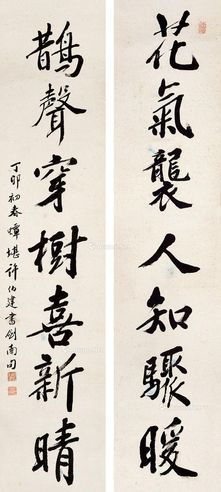 花氣襲人知驟暖
鵲聲穿樹喜新晴
丁卯初春煒堪許伯建書劍南句